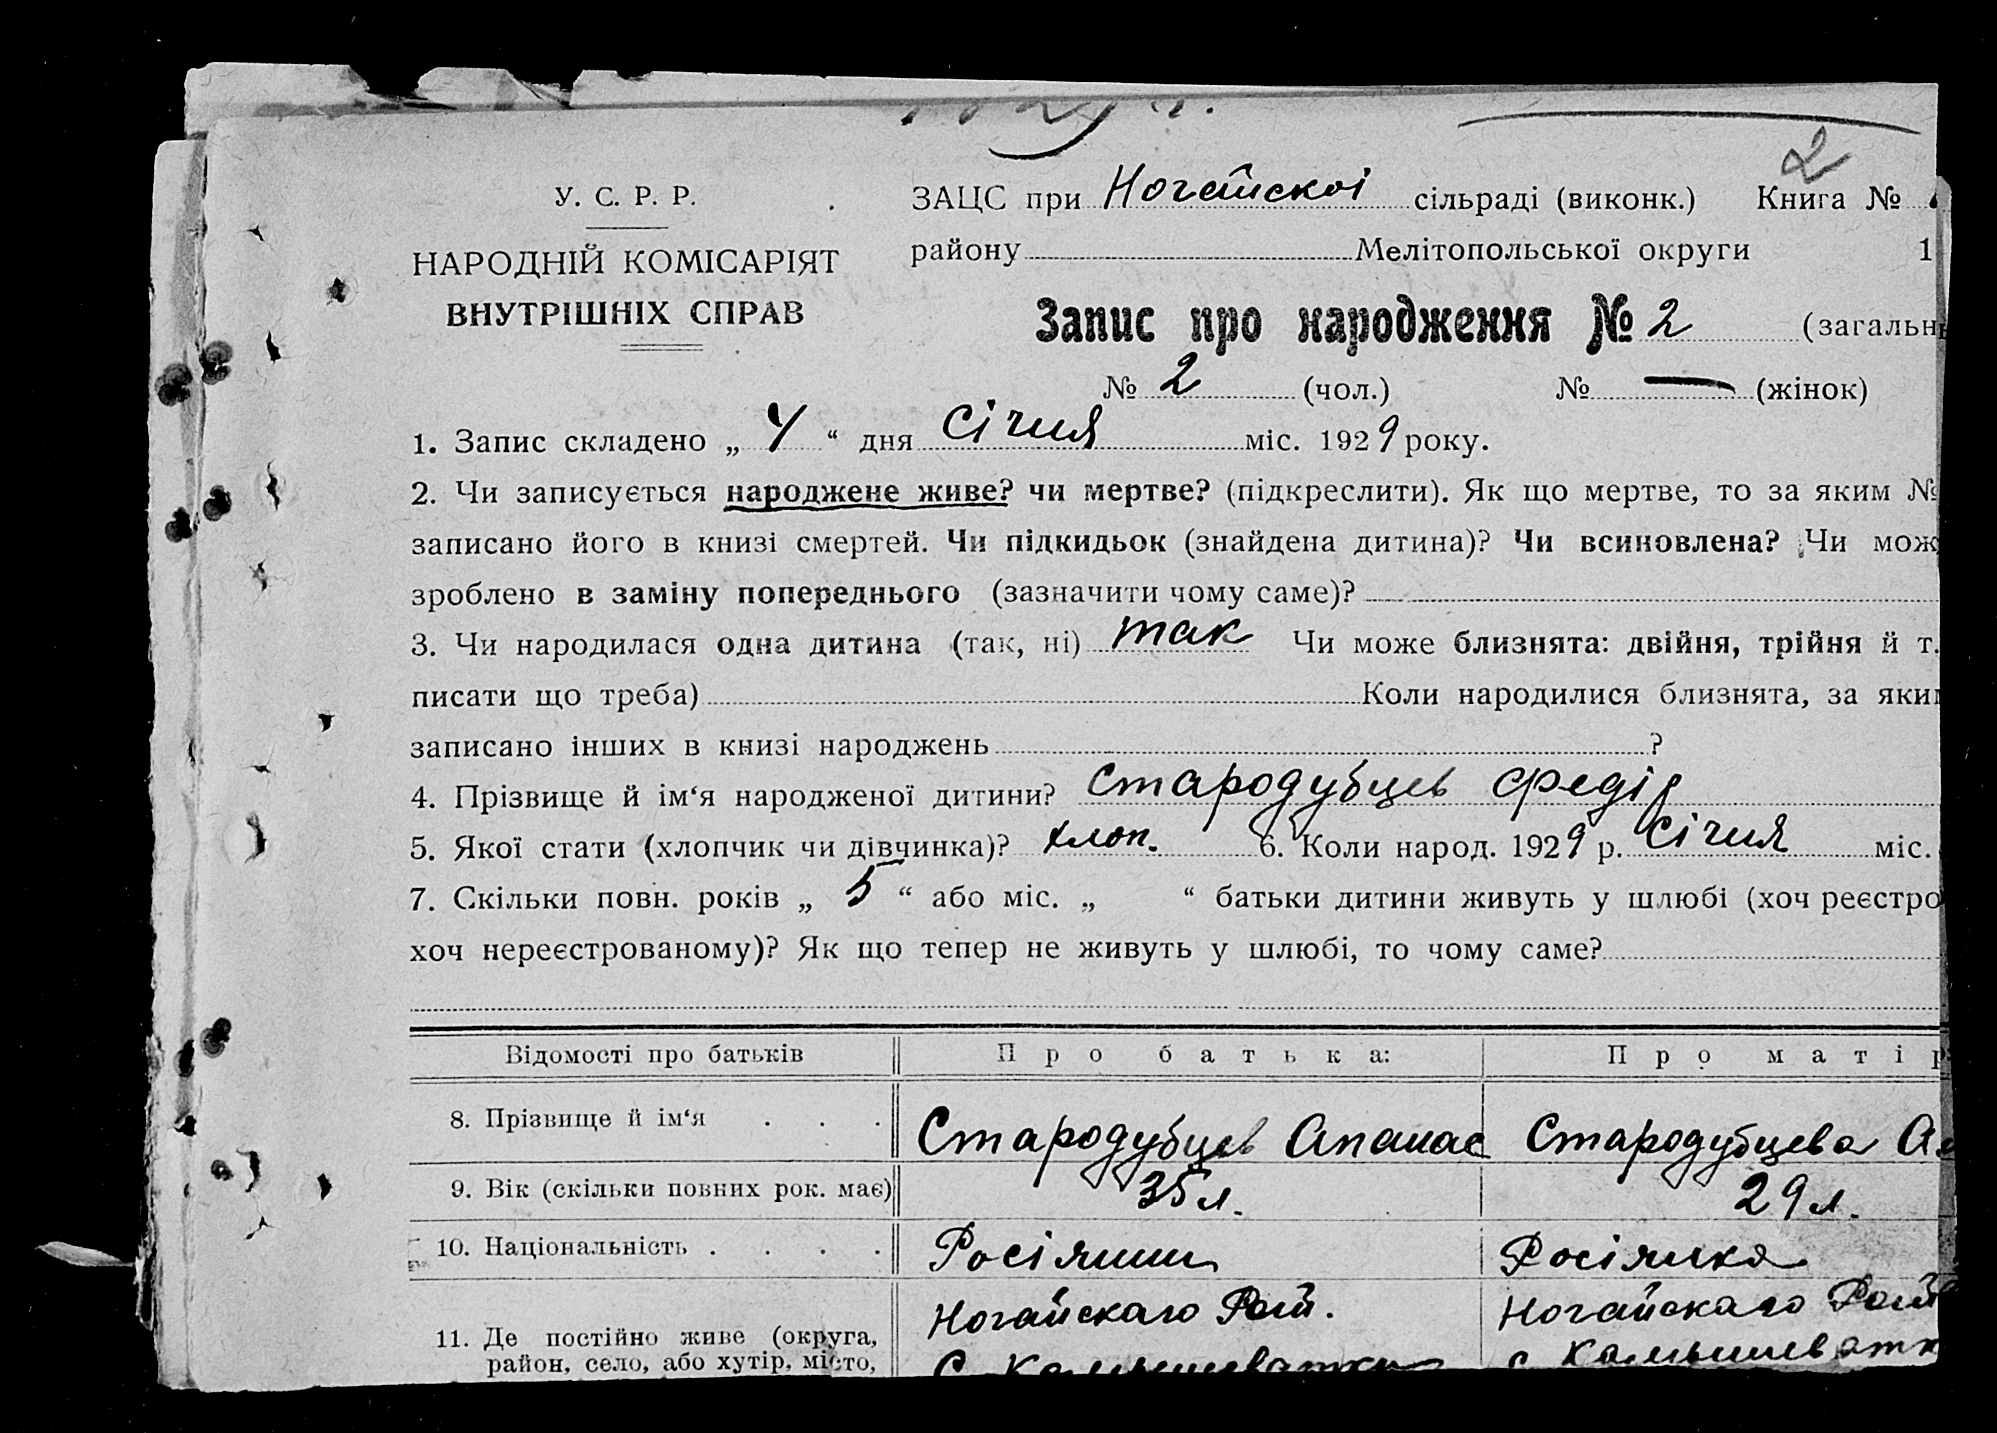 2
У. С. Р. Р.
НАРОДНІЙ КОМІСАРІЯТ
ВНУТРІШНІХ СПРАВ
ЗАЦС при Ногайскоі сільраді (виконк.) Книга №
району Мелітопольської округи 1
Запис про народження № 2 (загальн
№ 2 (чол.) № — (жінок)
1. Запис складено „ 4 “ дня Січня міс. 1929 року.
2. Чи записується народжене живе? чи мертве? (підкреслити). Як що мертве, то за яким №
записано його в книзі смертей. Чи підкидьок (знайдена дитина)? Чи всиновлена? Чи мож
зроблено в заміну попереднього (зазначити чому саме)?
3. Чи народилася одна дитина (так, ні) так Чи може близнята: двійня, трійня й т.
писати що треба) Коли народилися близнята, за яки
записано інших в книзі народжень ?
4. Прізвище й ім‘я народженої дитини? Стародубцев Федір
5. Якої стати (хлопчик чи дівчинка)? хлоп. 6. Коли народ. 1929 р. Січня міс.
7. Скільки повн. років „ 5 “ або міс. „ “ батьки дитини живуть у шлюбі (хоч реєстро
хоч нереєстрованому)? Як що тепер не живуть у шлюбі, то чому саме?
Відомості про батьків Про батька: Про матір
8. Прізвище й ім‘я . . . Стародубцев Апанас Стародубцева
9. Вік (скільки повних рок. має) 35 л. 29 л.
10. Національність . . . . Росіянин Росіянка
11. Де постійно живе (округа, Ногайскаго Рай. Ногайскаго Рай
район, село, або хутір, місто, С. Камышеватки с. Камышеватк